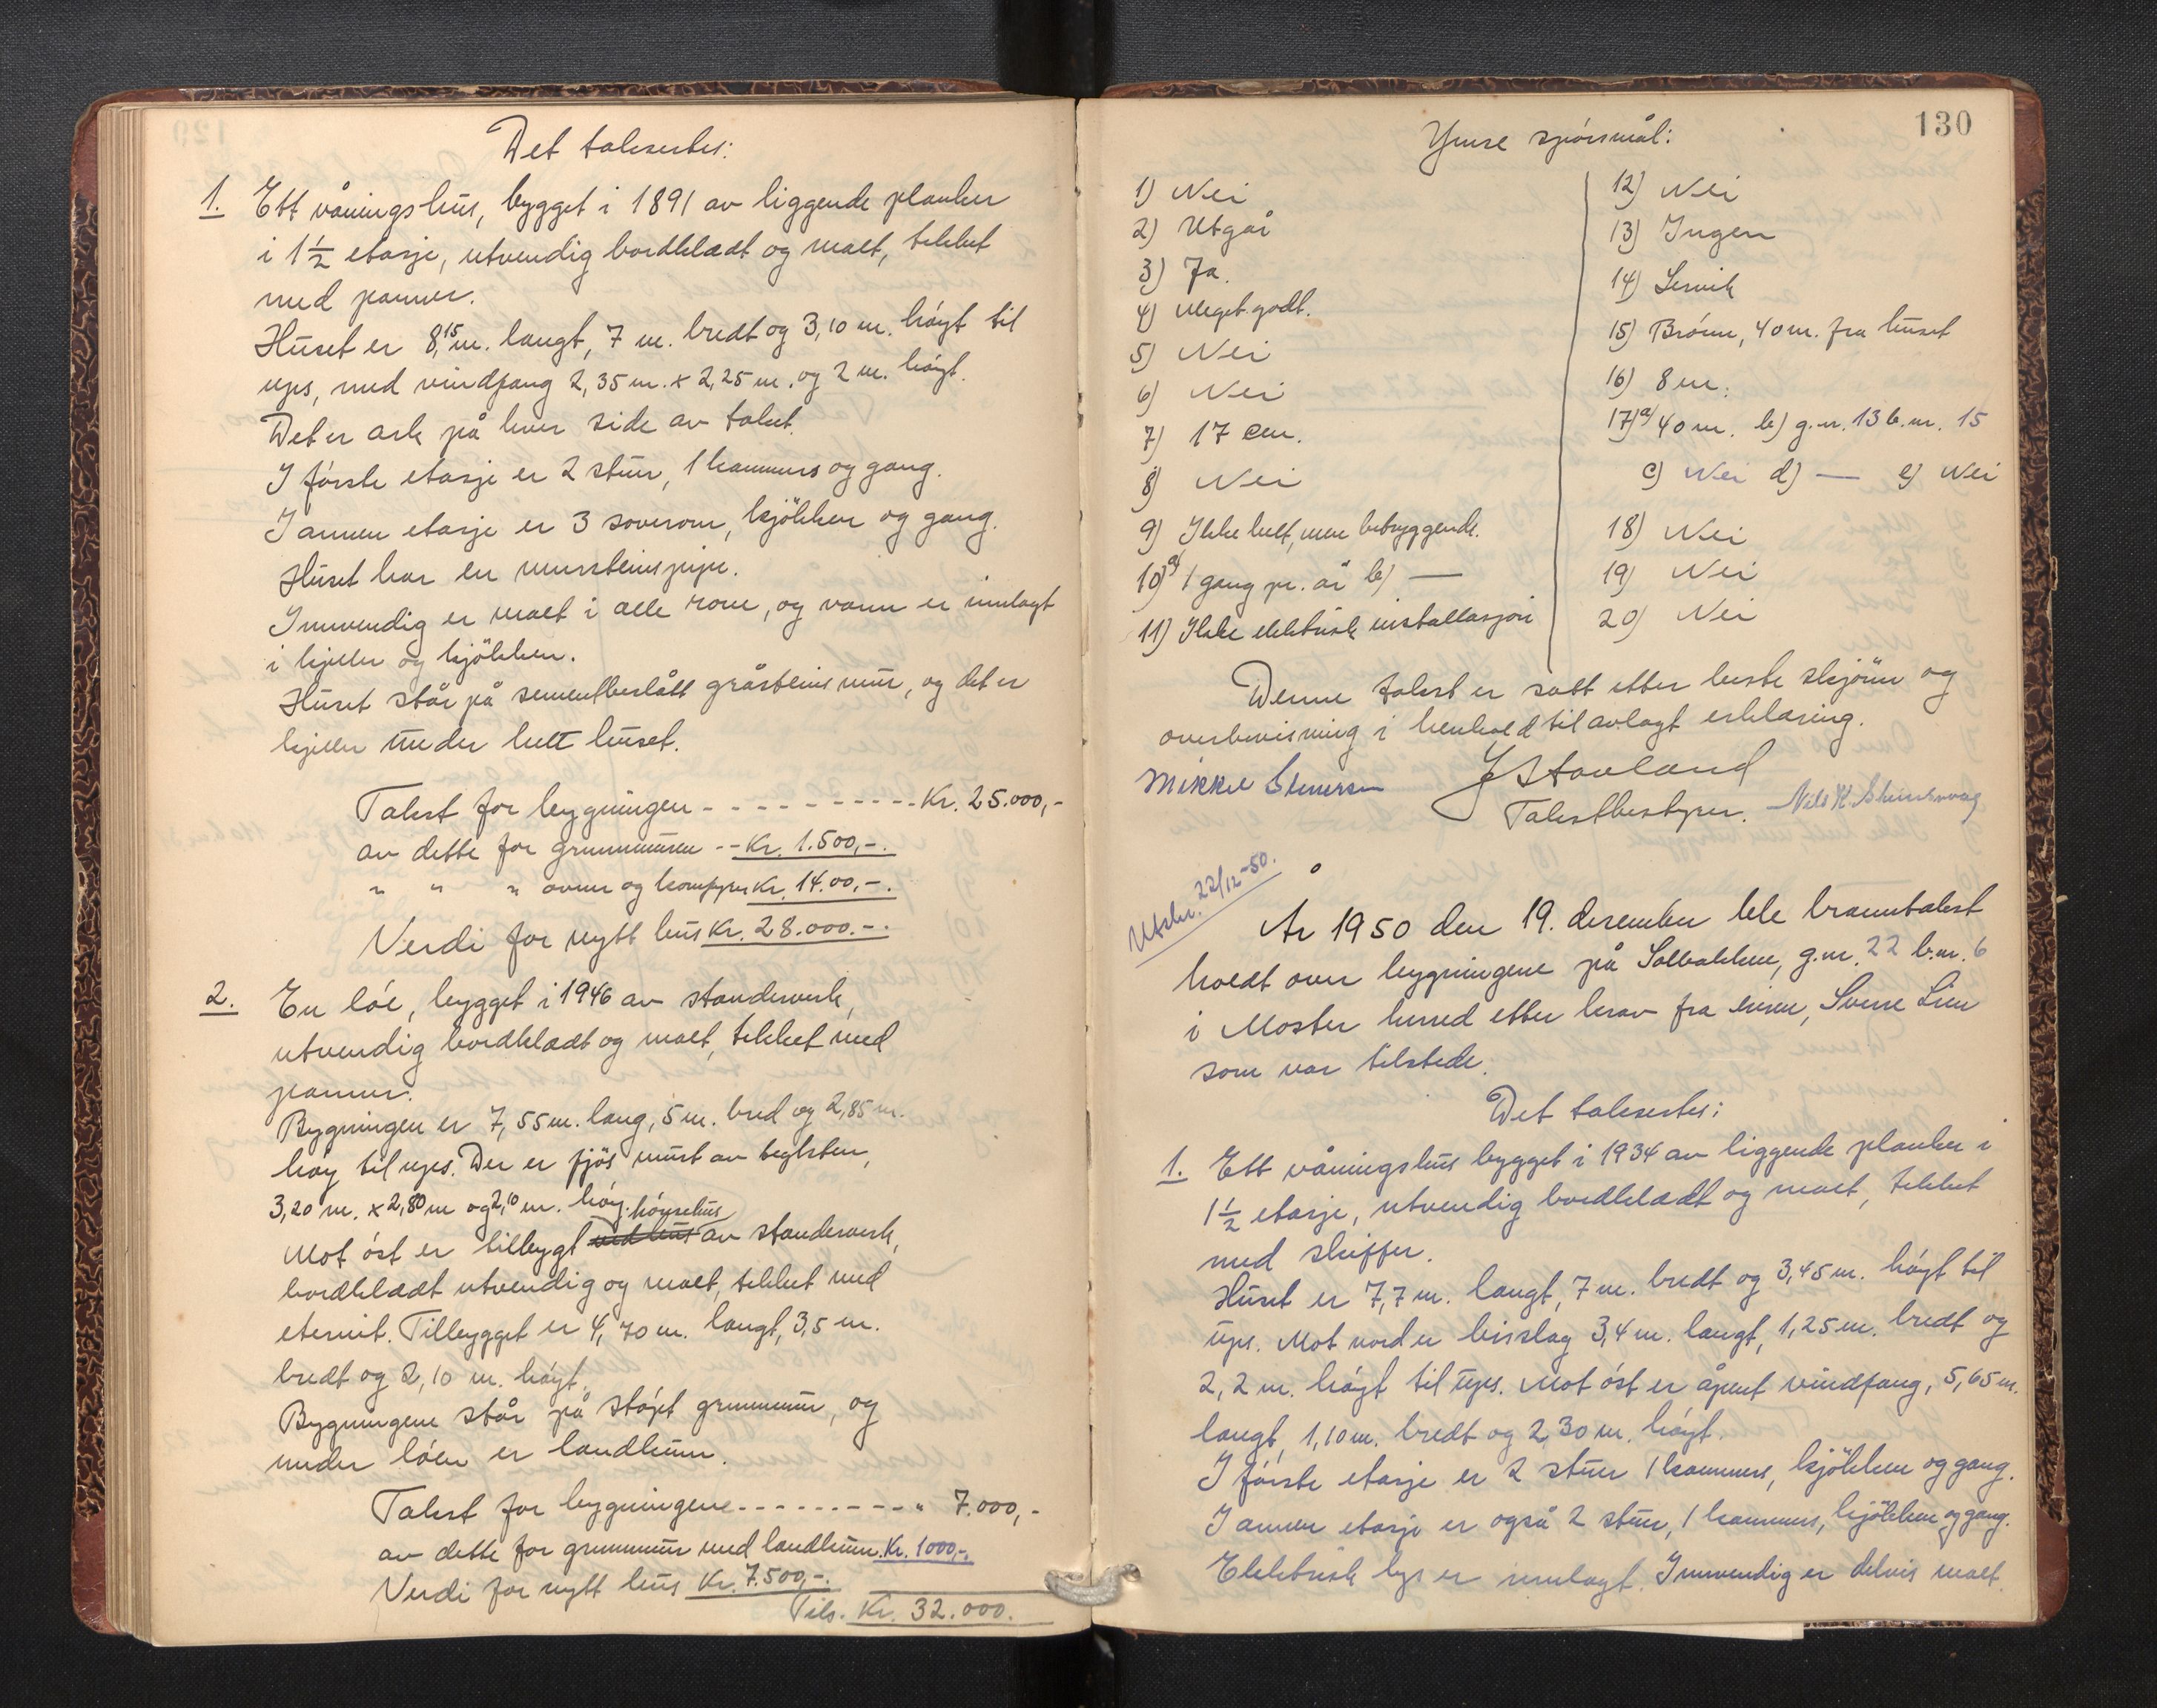 Det takserte:
1. Ett våningshus, bygget i 1891 av liggende planker
i 1 1/2 etasje, utvendig bordkledt og malt, tekket
med panner.
Huset er 8,15 m. langt, 7 m. bredt og 3,10 m. högt til
ups, med vindfang 2,35 m. x 2,25 m. og 2 m. högt.
Det er ark på hver side av taket.
I förste etasje er 2 stuer, 1 kammers og gang.
I annen etasje er 3 soverom, kjökken og gang.
Huset har en mursteinspipe.
Innvendig er malt i alle rom, og vann er innlagt
i kjeller og kjökken.
Huset står på sementbeslått gråsteinsmur, og det er
kjeller under helt huset.
Takst for bygningen - - - - - - - - - - Kr. 25.000,-
av dette for grunnmuren -- Kr. 1.500,-.
" " " ovner og komfyrer Kr. 14.00,-.
Verdi for nytt hus Kr. 28.000.-.
2. En löe, bygget i 1946 av standerverk,
utvendig bordkledt og malt, tekket med
panner.
Bygningen er 7,55 m. lang, 5 m. bred og 2,85 m.
höy til ups. Der er fjös murt av teglsten,
3,20 m. x 2,80 m og 2,10 m. höy. hönsehus
Mot öst er tilbygt vedhus av standerverk,
bordkledt utvendig og malt, tekket med
eternit. Tilbygget er 4,70 m. langt, 3,5 m.
bredt og 2,10 m. högt.
Bygningene står på stöpt grunnmur, og
under löen er landkum.
Takst for bygningene - - - - - - - - - " 7.000,-
av dette for grunnmur med landkum. Kr. 1000,-.
Verdi for nytt hus Kr. 7.500,-.
Tils. Kr. 32.000.
130
Ymse spörsmål:
1) Nei
2) Utgår
3) Ja.
4) Meget godt.
5) Nei
6) Nei
7) 17 cm.
8) Nei
9) Ikke helt, men betryggende.
10) a) 1 gang pr. år b) —
11) Ikke elektrisk installasjon
12) Nei
13) Ingen
14) Lervik
15) Brönn, 40 m. fra huset
16) 8 m.
17) a) 40 m. b) g.nr. 13 b.nr. 15
c) Nei d) — e) Nei
18) Nei
19) Nei
20) Nei
Denne takst er satt etter beste skjönn og
overbevisning i henhold til avlagt erklæring.
Mikkel Stenersen J Stavland
Takstbestyrer. Nils H.
Utskr. 22/12-50.
År 1950 den 19. desember ble branntakst
holdt over bygningene på Solbakken, g.nr. 22 b.nr. 6
i Moster herred etter krav fra eieren, Sverre Lien
som var tilstede.
Det takserte:
1. Ett våningshus bygget i 1934 av liggende planker i
1 1/2 etasje, utvendig bordkledt og malt, tekket
med skiffer.
Huset er 7,7 m. langt, 7 m. bredt og 3,45 m. högt til
ups. Mot nord er bislag 3,4 m. langt, 1,25 m. bredt og
2,2 m. högt til ups. Mot öst er åpent vindfang, 5,65 m.
langt, 1,10 m. bredt og 2,30 m. högt.
I förste etasje er 2 stuer 1 kammers, kjökken og gang.
I annen etasje er også 2 stuer, 1 kammers, kjökken og gang.
Elektrisk lys er innlagt. Innvendig er delvis malt